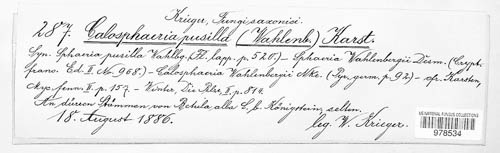 Krieger, Fungi saxonici.
287. Calosphaeria pusilla (Wahlenb.) Karst.
Syn. Sphaeria pusilla Wahlbg. Fl. lapp. p. 520. – Sphaeria Wahlenbergii Desm. (Crypt.
franc. Ed. II. No. 968.) – Calosphaeria Wahlenbergii Nke. (Pyr. germ. p. 92) – cfr. Karsten,
Myc. fenn. II. p. 157. – Winter, Die Pilze, II. p. 814.
An dürren Stämmen von Betula alba L. b. Königstein, selten.
18. August 1886. leg. W. Krieger.
978534